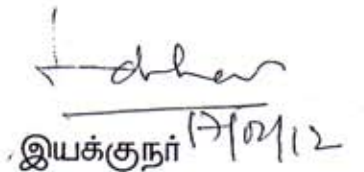 இயக்குநர் 17/02/12